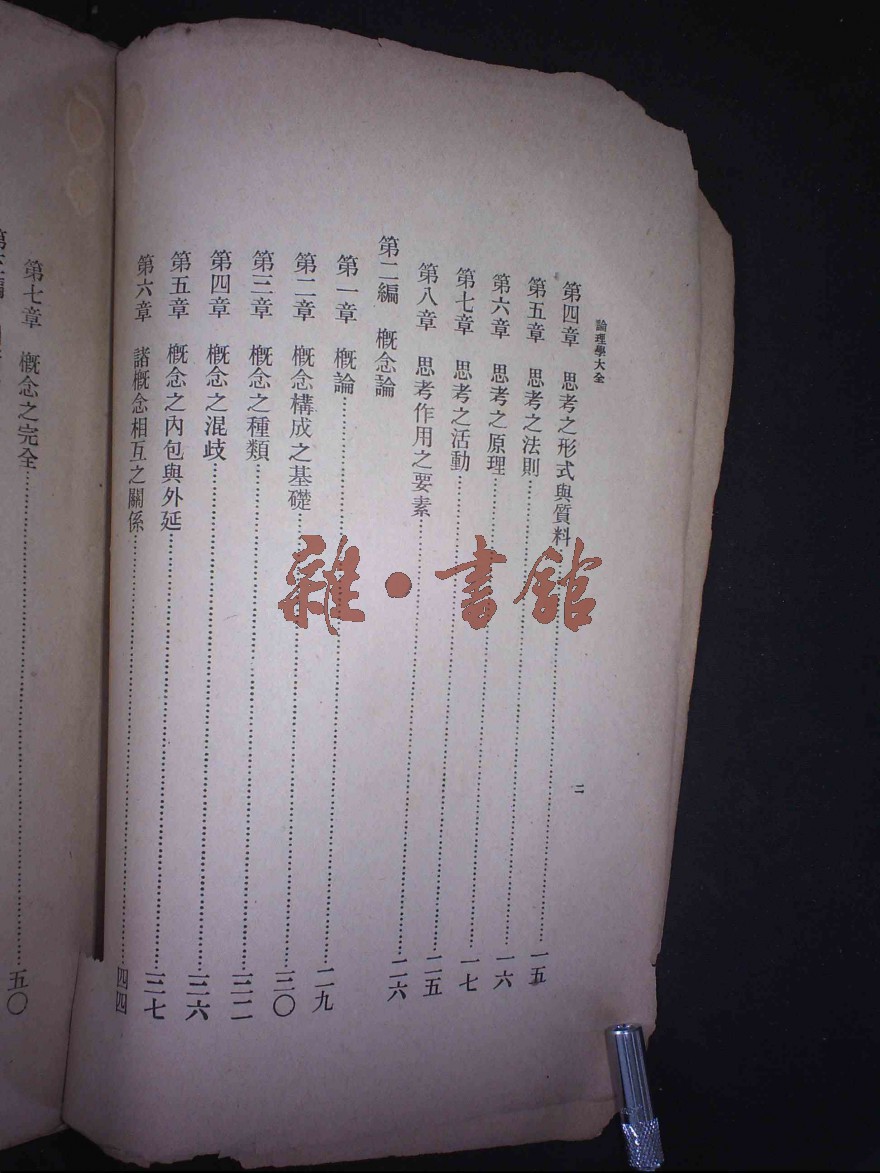 論理學大全
二
第四章 思考之形式與質料……一五
第五章 思考之法則……一六
第六章 思考之原理……一七
第七章 思考之活動……二五
第八章 思考作用之要素……二六
第二編 概念論
第一章 概論……二九
第二章 概念構成之基礎……三〇
第三章 概念之種類……三二
第四章 概念之混歧……三六
第五章 概念之內包與外延……三七
第六章 諸概念相互之關係……四四
第七章 概念之完全……五〇
雜·書館